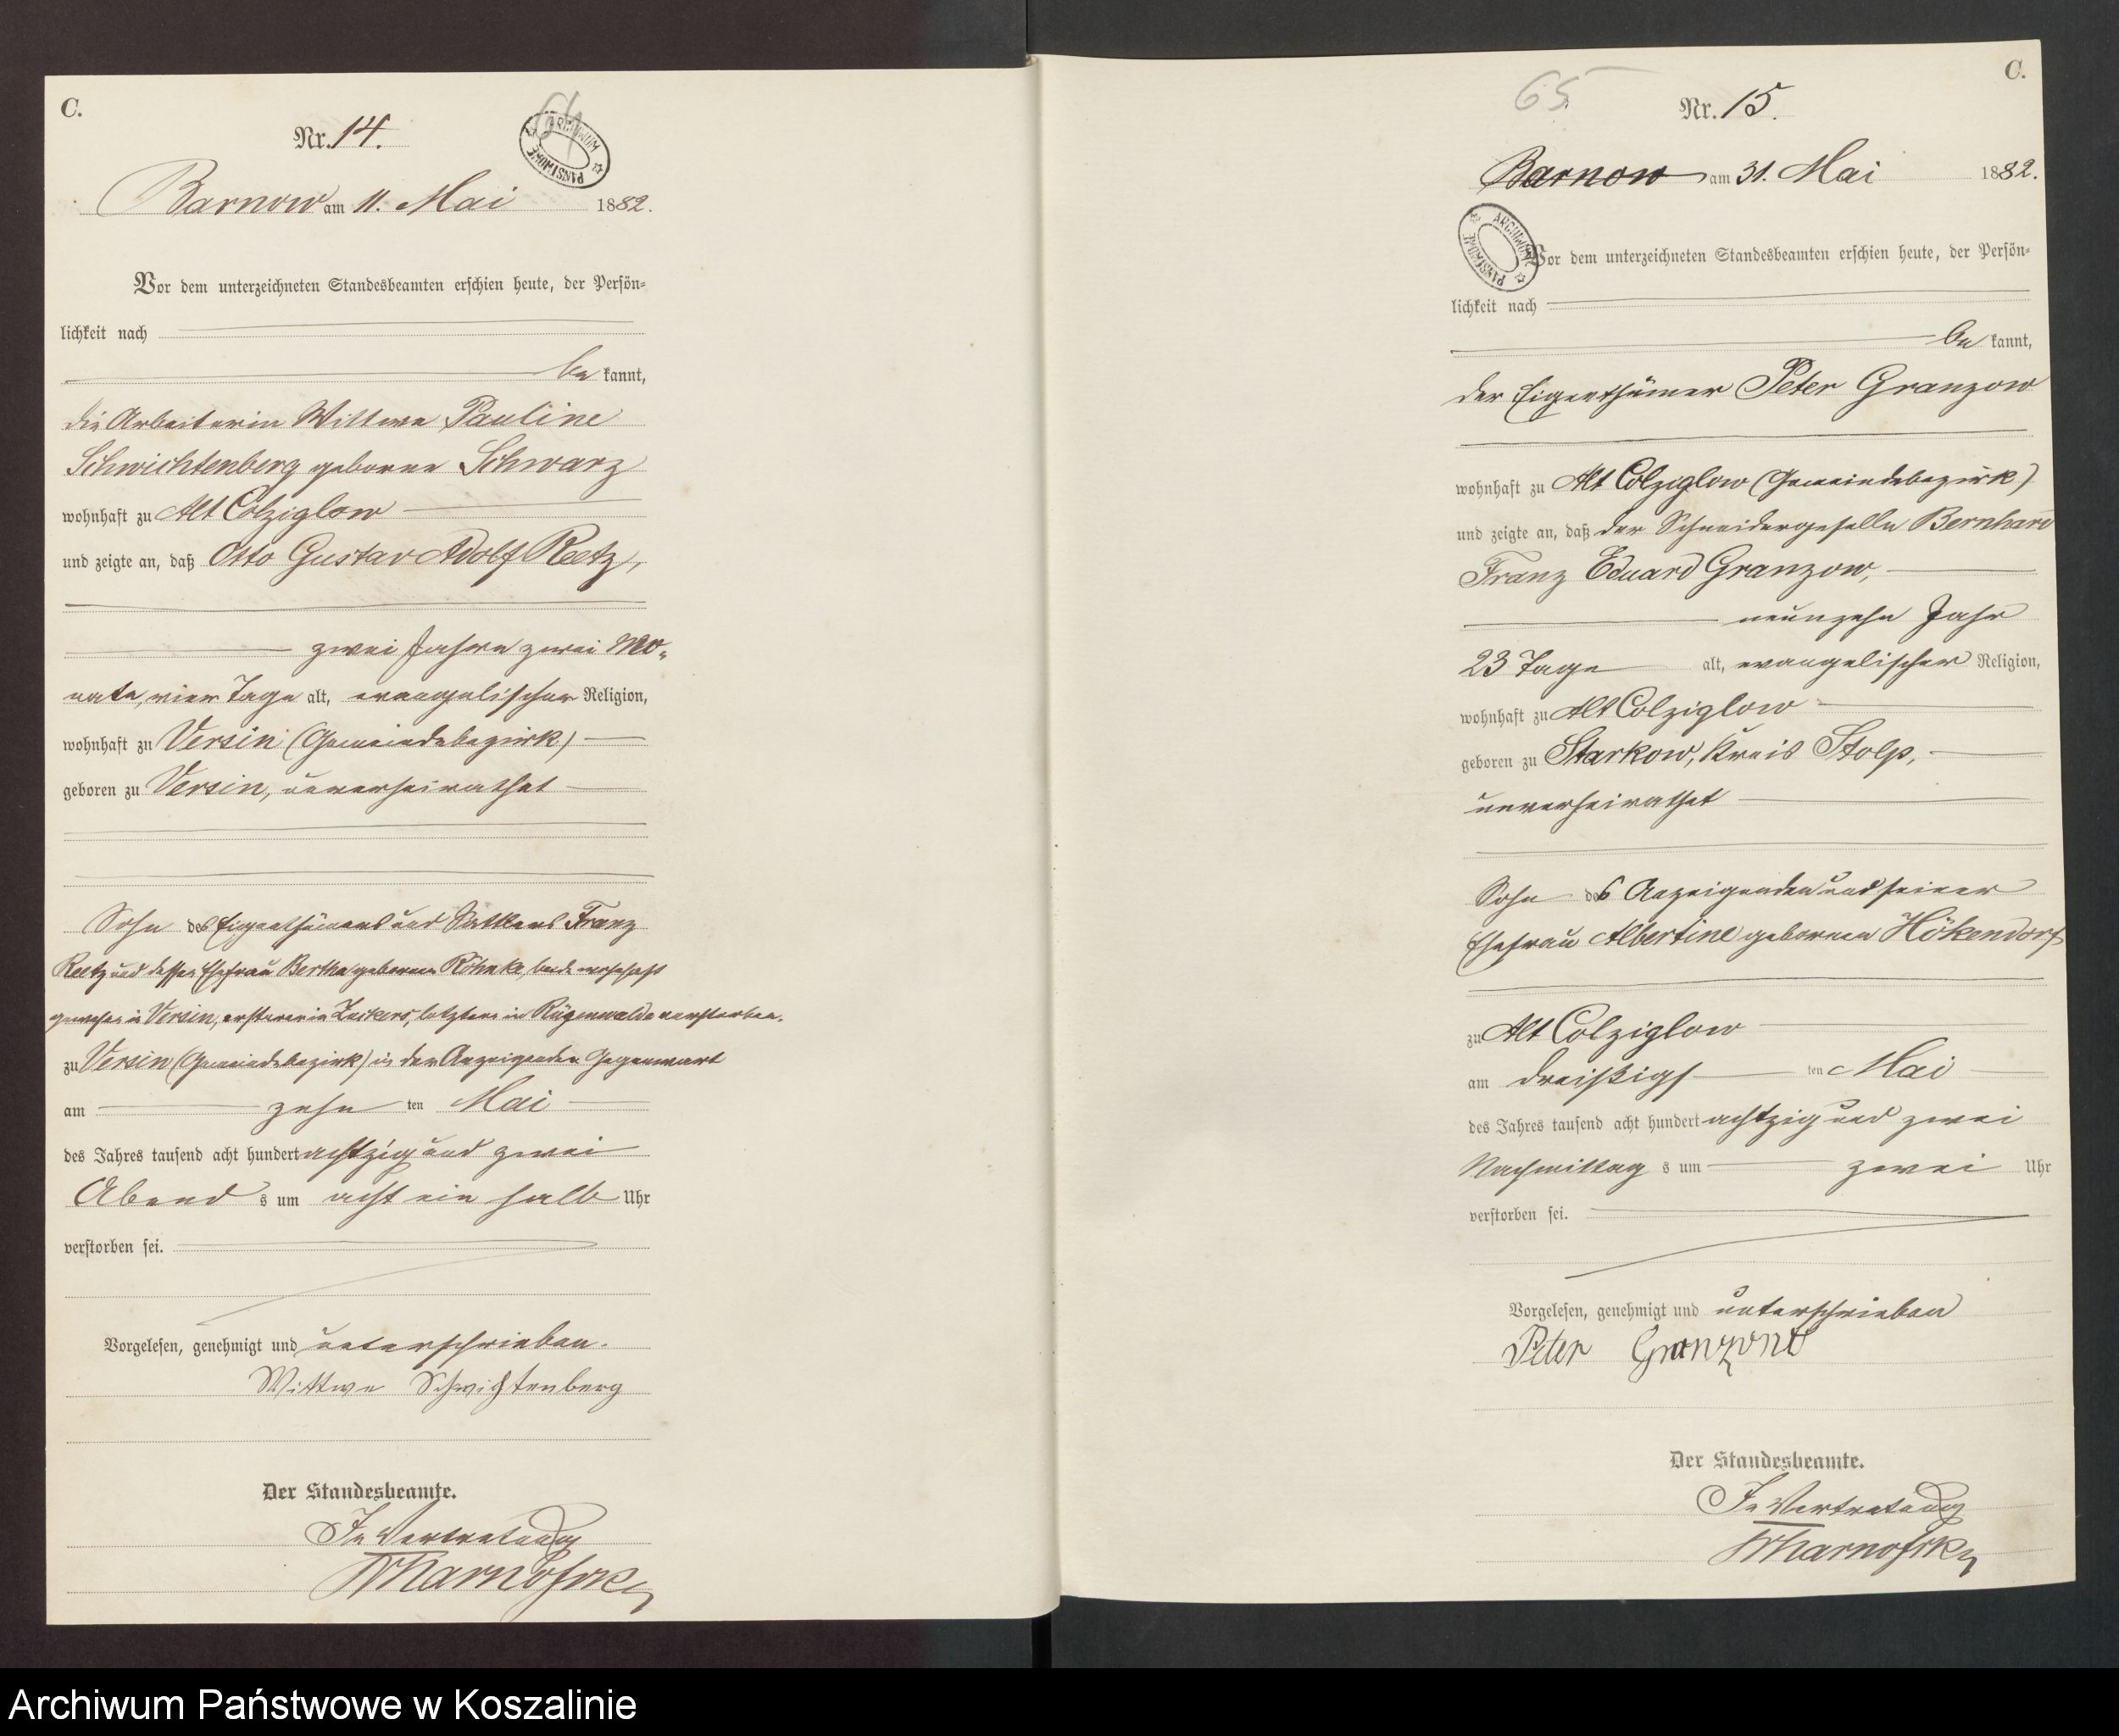 C.
64
Nr. 14.
ARCHIWUM PAŃSTWOWE
Barnow am 11. Mai 1882.
Vor dem unterzeichneten Standesbeamten erschien heute, der Persön-
lichkeit nach
be kannt,
die Arbeiterin Wittwe Pauline
Schwichtenberg geborne Schwarz
wohnhaft zu Alt Colziglow
und zeigte an, daß Otto Gustav Adolf Reetz,
zwei Jahre zwei Mo-
nate, vier Tage alt, evangelischer Religion,
wohnhaft zu Versin (Gemeindebezirk)
geboren zu Versin, unverheirathet
Sohn des Eigenthümers und Franz
Reetz und dessen Ehefrau Bertha geborenen Röhnke, beide wohnhaft
gewesen in Versin, ersterer in Zuckers, letztere in Rügenwalde verstorben.
zu Versin (Gemeindebezirk) in der Anzeigenden Gegenwart
am zehn ten Mai
des Jahres tausend acht hundert achtzig und zwei
Abend s um acht ein halb Uhr
verstorben sei.
Vorgelesen, genehmigt und unterschrieben.
Wittwe Schwichtenberg
Der Standesbeamte.
In Vertretung
C.
65
Nr. 15.
Barnow am 31. Mai 1882.
ARCHIWUM PAŃSTWOWE
Vor dem unterzeichneten Standesbeamten erschien heute, der Persön-
lichkeit nach
be kannt,
der Eigenthümer Peter Granzow
wohnhaft zu Alt Colziglow (Gemeindebezirk)
und zeigte an, daß der Schneidergeselle Bernhard
Franz Eduard Granzow,
neunzehn Jahr
23 Tage alt, evangelischer Religion,
wohnhaft zu Alt Colziglow
geboren zu Starkow, Kreis Stolp,
unverheirathet
Sohn des Anzeigenden und seiner
Ehefrau Albertine gebornen Hökendorf
zu Alt Colziglow
am dreißigs ten Mai
des Jahres tausend acht hundert achtzig und zwei
Nachmittag s um zwei Uhr
verstorben sei.
Vorgelesen, genehmigt und unterschrieben
Peter Granzow
Der Standesbeamte.
In Vertretung
Archiwum Państwowe w Koszalinie